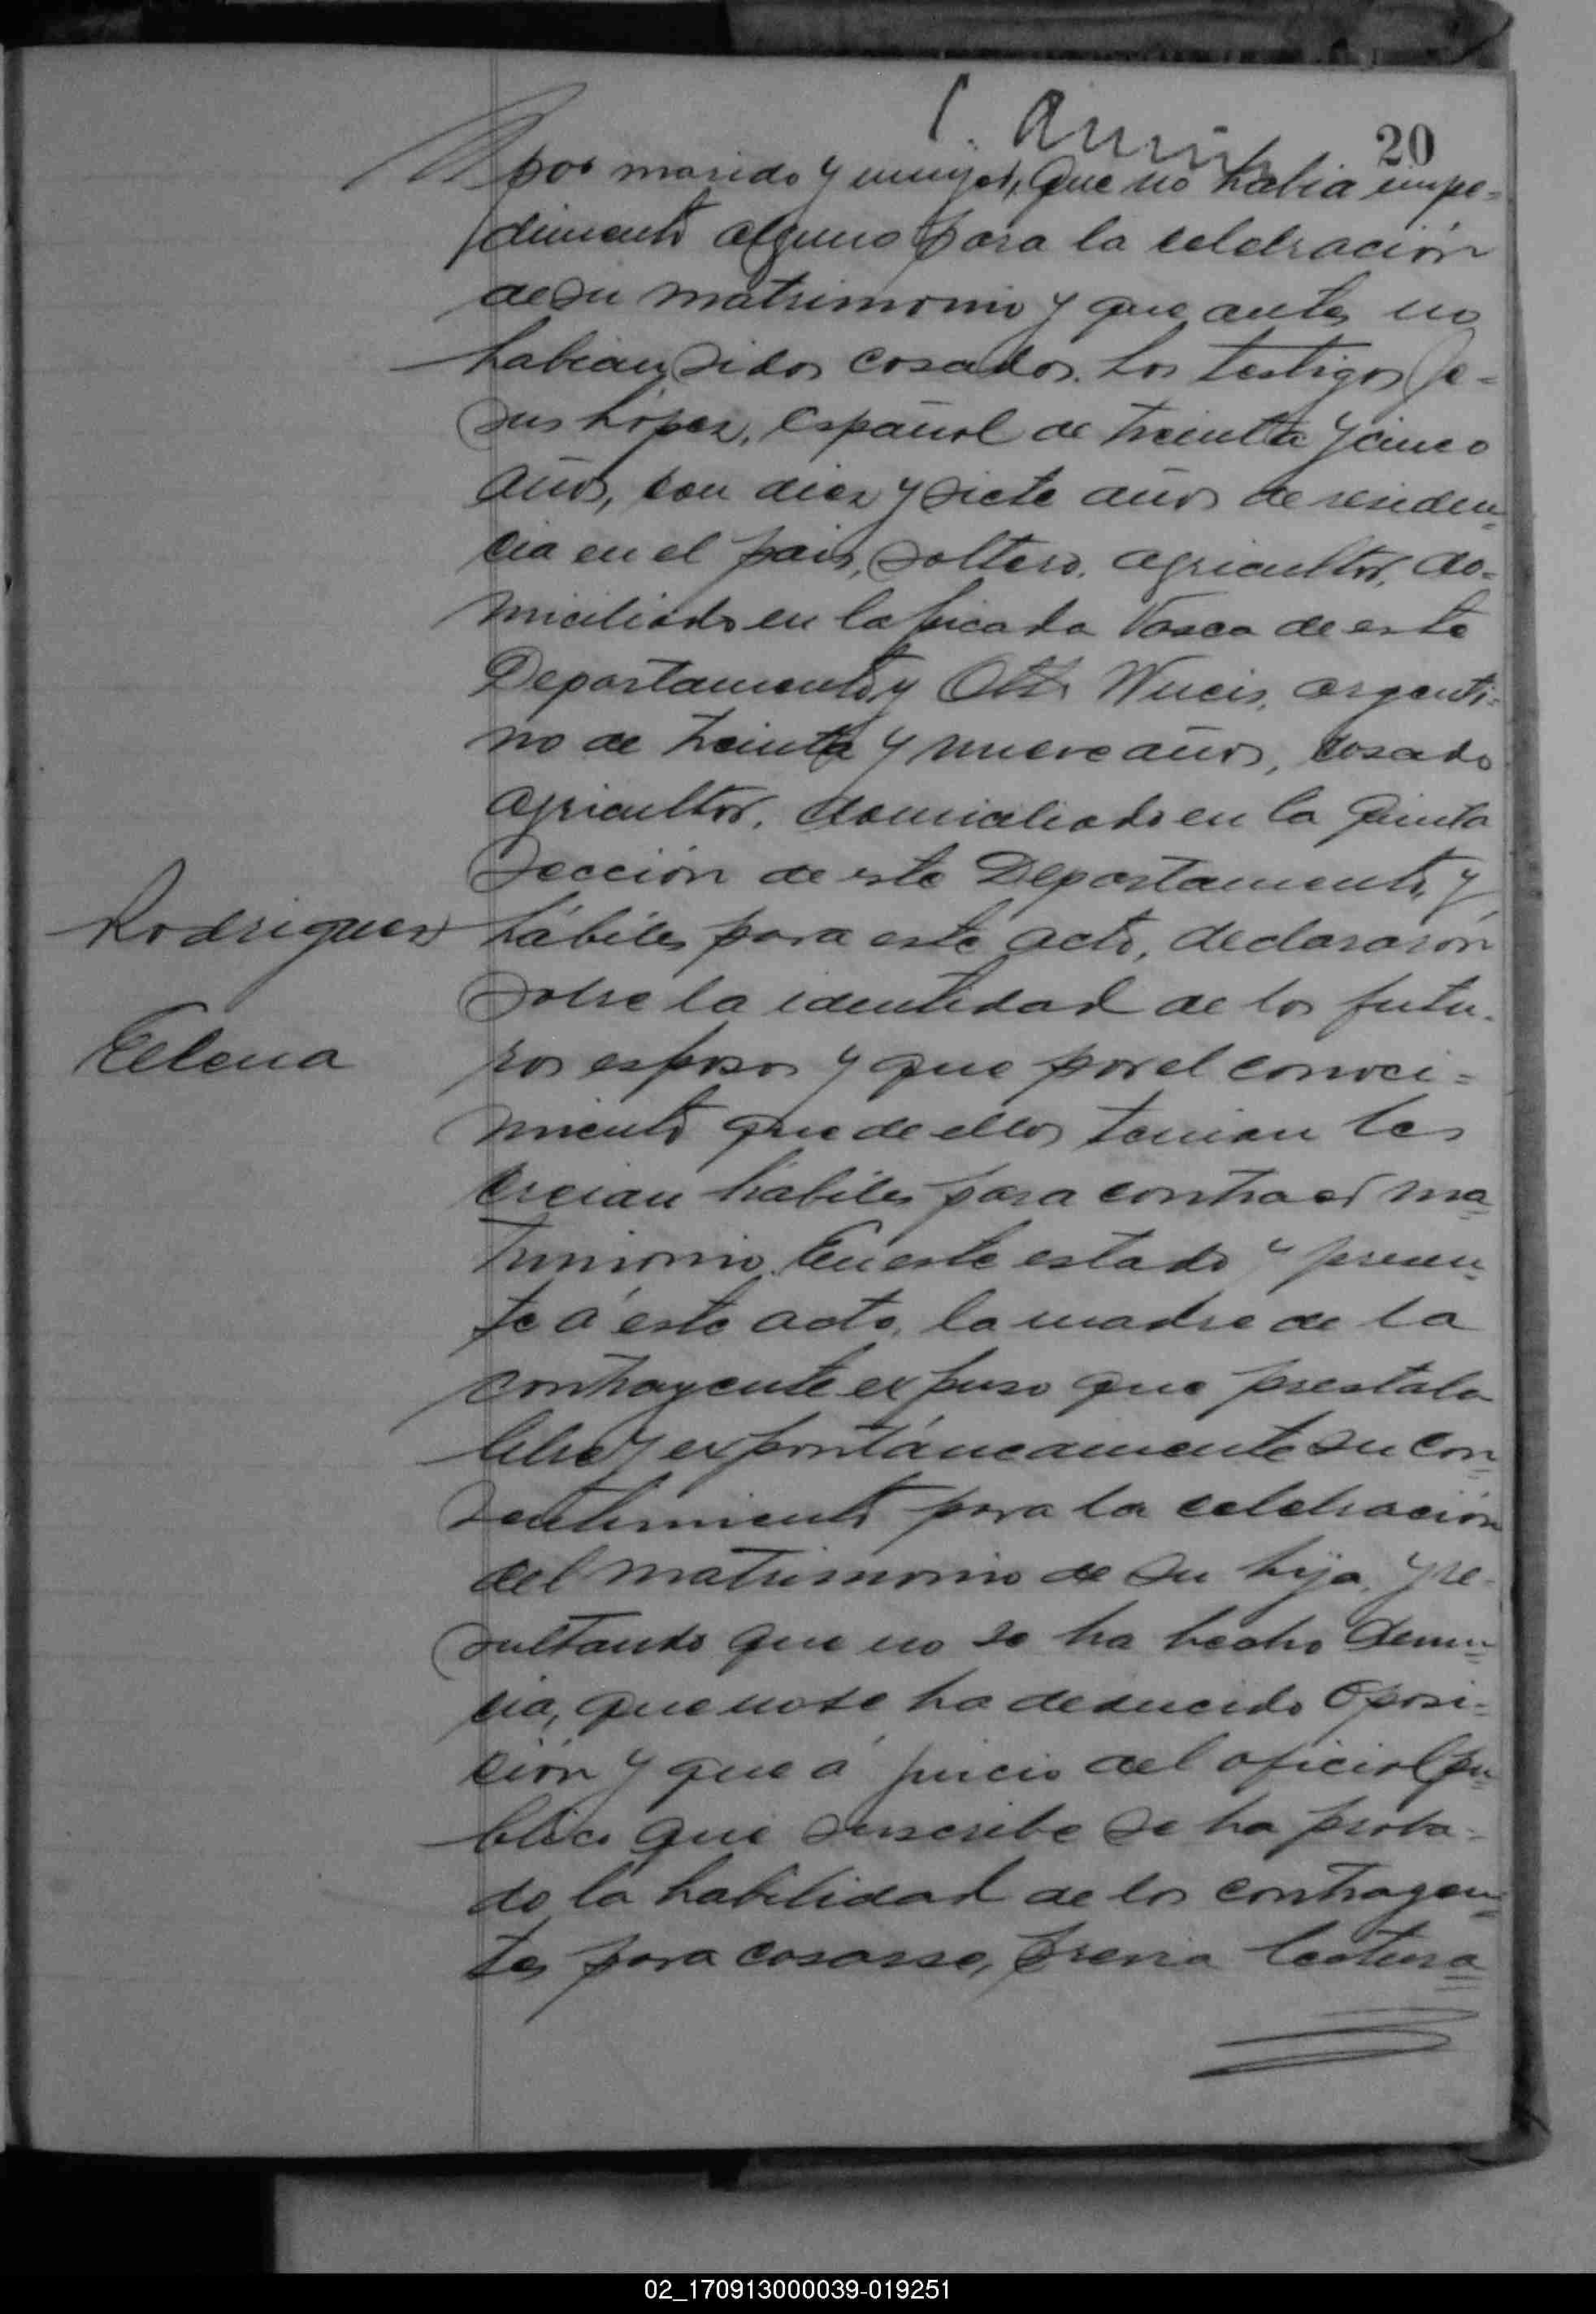 20
por marido y mujer, que no habia impe-
dimento alguno para la celebración
de su matrimonio y que antes no
habian sidos casados. Los testigos Je-
sus López, Español de treinta y cinco
años, con diez y siete años de residen-
cia en el pais, soltero, agricultor, do-
miciliado en la picada Vasca de este
Departamento y Otto argenti-
no de treinta y nueve años, casado
agricultor, domiciliado en la Quinta
Sección de este Departamento, y
Rodriguez
hábiles para este acto, declararón
sobre la identidad de los futu-
Elena
ros esposos y que por el conoci-
miento que de ellos tenian les
creian hábiles para contraer ma-
trimonio. En este estado y presen-
te á este acto, la madre de la
contrayente expuso que prestaba
libre y expontáneamente su con-
sentimiento para la celebración
del matrimonio de su hija, y re-
sultando que no se ha hecho denun-
cia, que no se ha deducido oposi-
ción y que á juicio del oficial pu-
blico que suscribe se ha proba-
do la habilidad de los contrayen-
tes para casarse, previa lectura
02_170913000039-019251